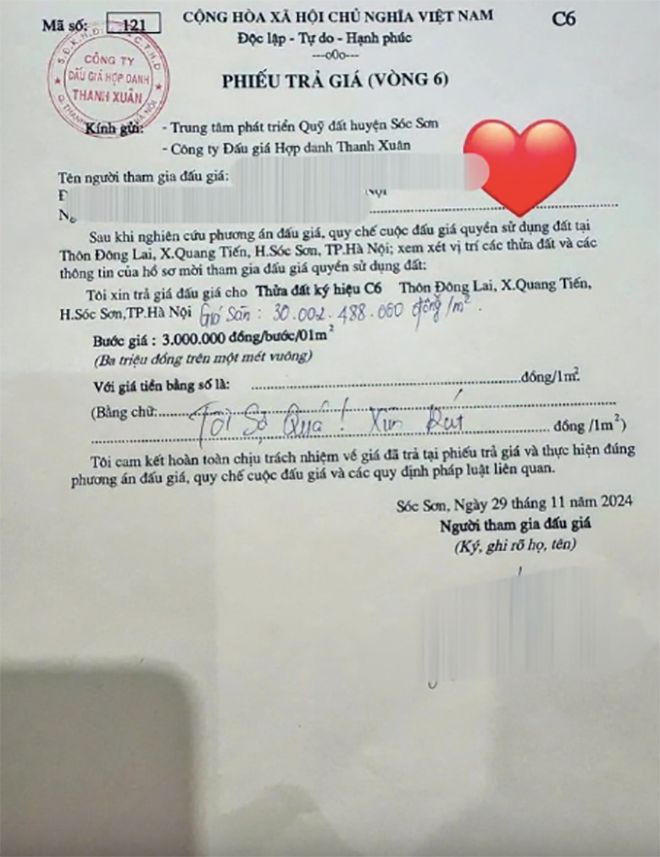 Mã số: 121
CỘNG HÒA XÃ HỘI CHỦ NGHĨA VIỆT NAM
C6
Độc lập - Tự do - Hạnh phúc
---o0o---
PHIẾU TRẢ GIÁ (VÒNG 6)
CÔNG TY
ĐẤU GIÁ HỢP DANH
THANH XUÂN
Kính gửi: - Trung tâm phát triển Quỹ đất huyện Sóc Sơn
- Công ty Đấu giá Hợp danh Thanh Xuân
Tên người tham gia đấu giá:
Sau khi nghiên cứu phương án đấu giá, quy chế cuộc đấu giá quyền sử dụng đất tại
Thôn Đông Lai, X.Quang Tiến, H.Sóc Sơn, TP.Hà Nội; xem xét vị trí các thửa đất và các
thông tin của hồ sơ mời tham gia đấu giá quyền sử dụng đất:
Tôi xin trả giá đấu giá cho Thửa đất ký hiệu C6 Thôn Đông Lai, X.Quang Tiến,
H.Sóc Sơn,TP.Hà Nội Giá Sàn: 30.002.488.000 đồng/m².
Bước giá : 3.000.000 đồng/bước/01m²
(Ba triệu đồng trên một mét vuông)
Với giá tiền bằng số là: ...đồng/1m².
(Bằng chữ:...
Tôi Sợ Quá! Xin Rút
... đồng /1m²)
Tôi cam kết hoàn toàn chịu trách nhiệm về giá đã trả tại phiếu trả giá và thực hiện đúng
phương án đấu giá, quy chế cuộc đấu giá và các quy định pháp luật liên quan.
Sóc Sơn, Ngày 29 tháng 11 năm 2024
Người tham gia đấu giá
(Ký, ghi rõ họ, tên)